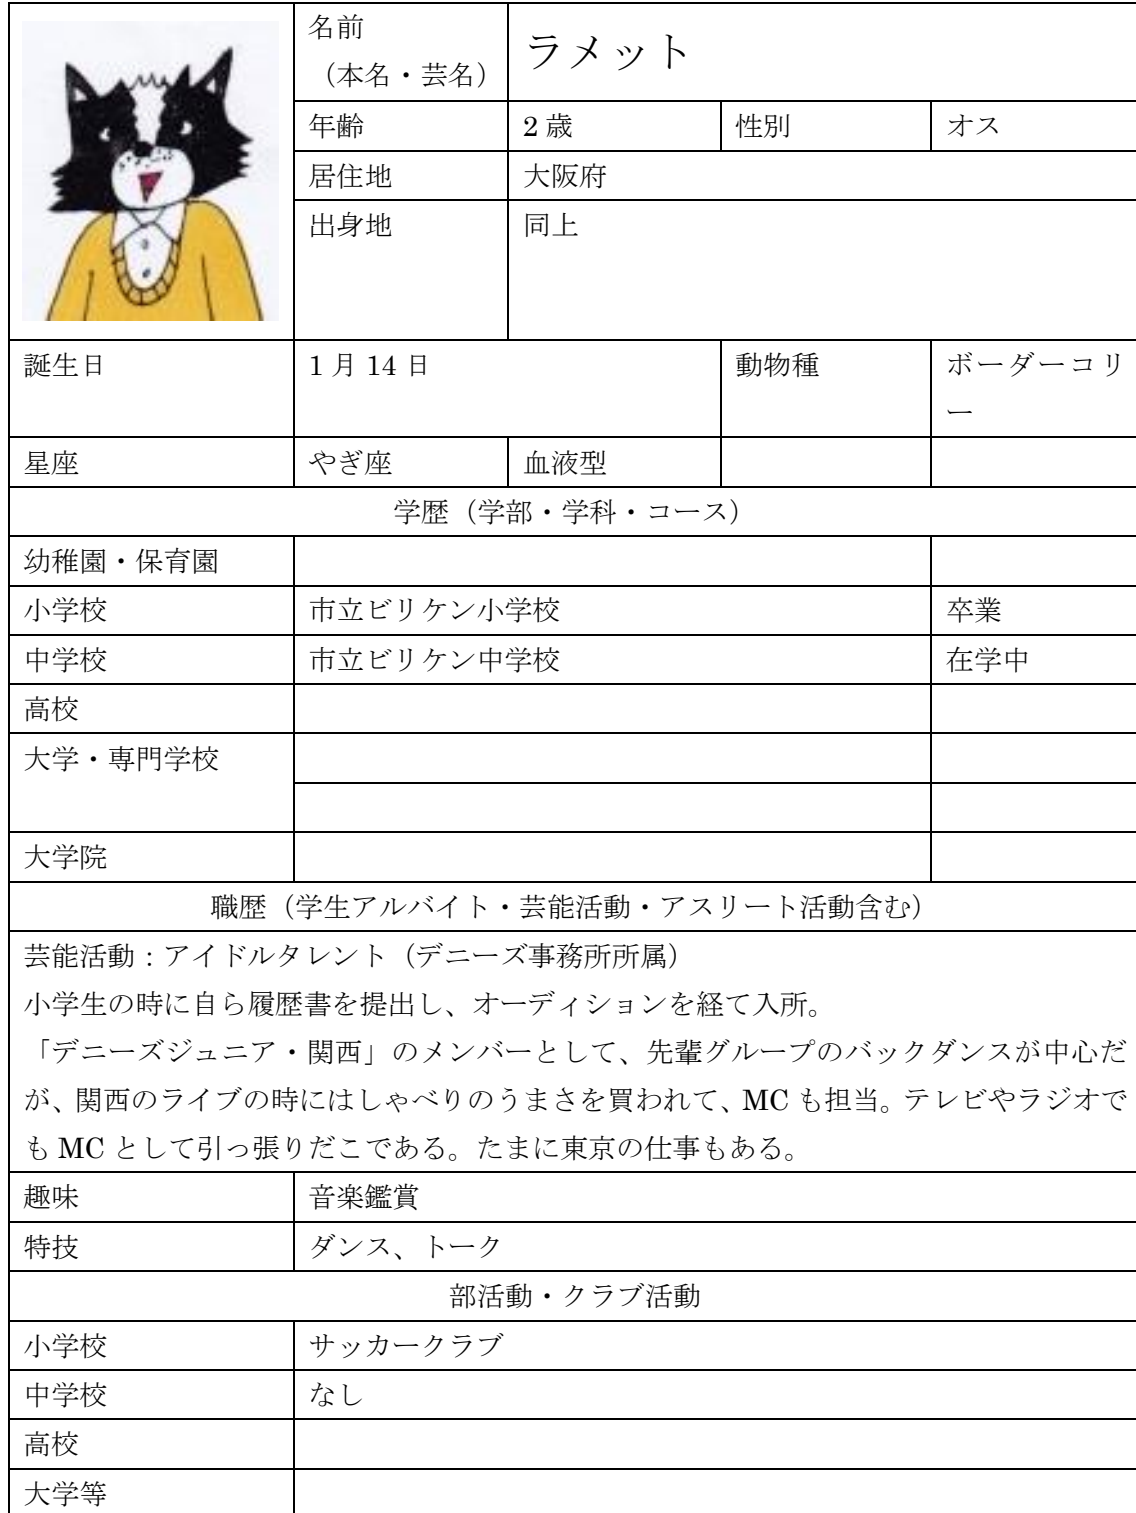 名前
（本名・芸名）
ラメット
年齢 2歳 性別 オス
居住地 大阪府
出身地 同上
誕生日 1月14日 動物種 ボーダーコリ
ー
星座 やぎ座 血液型
学歴（学部・学科・コース）
幼稚園・保育園
小学校 市立ビリケン小学校 卒業
中学校 市立ビリケン中学校 在学中
高校
大学・専門学校
大学院
職歴（学生アルバイト・芸能活動・アスリート活動含む）
芸能活動：アイドルタレント（デニーズ事務所所属）
小学生の時に自ら履歴書を提出し、オーディションを経て入所。
「デニーズジュニア・関西」のメンバーとして、先輩グループのバックダンスが中心だ
が、関西のライブの時にはしゃべりのうまさを買われて、MCも担当。テレビやラジオで
もMCとして引っ張りだこである。たまに東京の仕事もある。
趣味 音楽鑑賞
特技 ダンス、トーク
部活動・クラブ活動
小学校 サッカークラブ
中学校 なし
高校
大学等